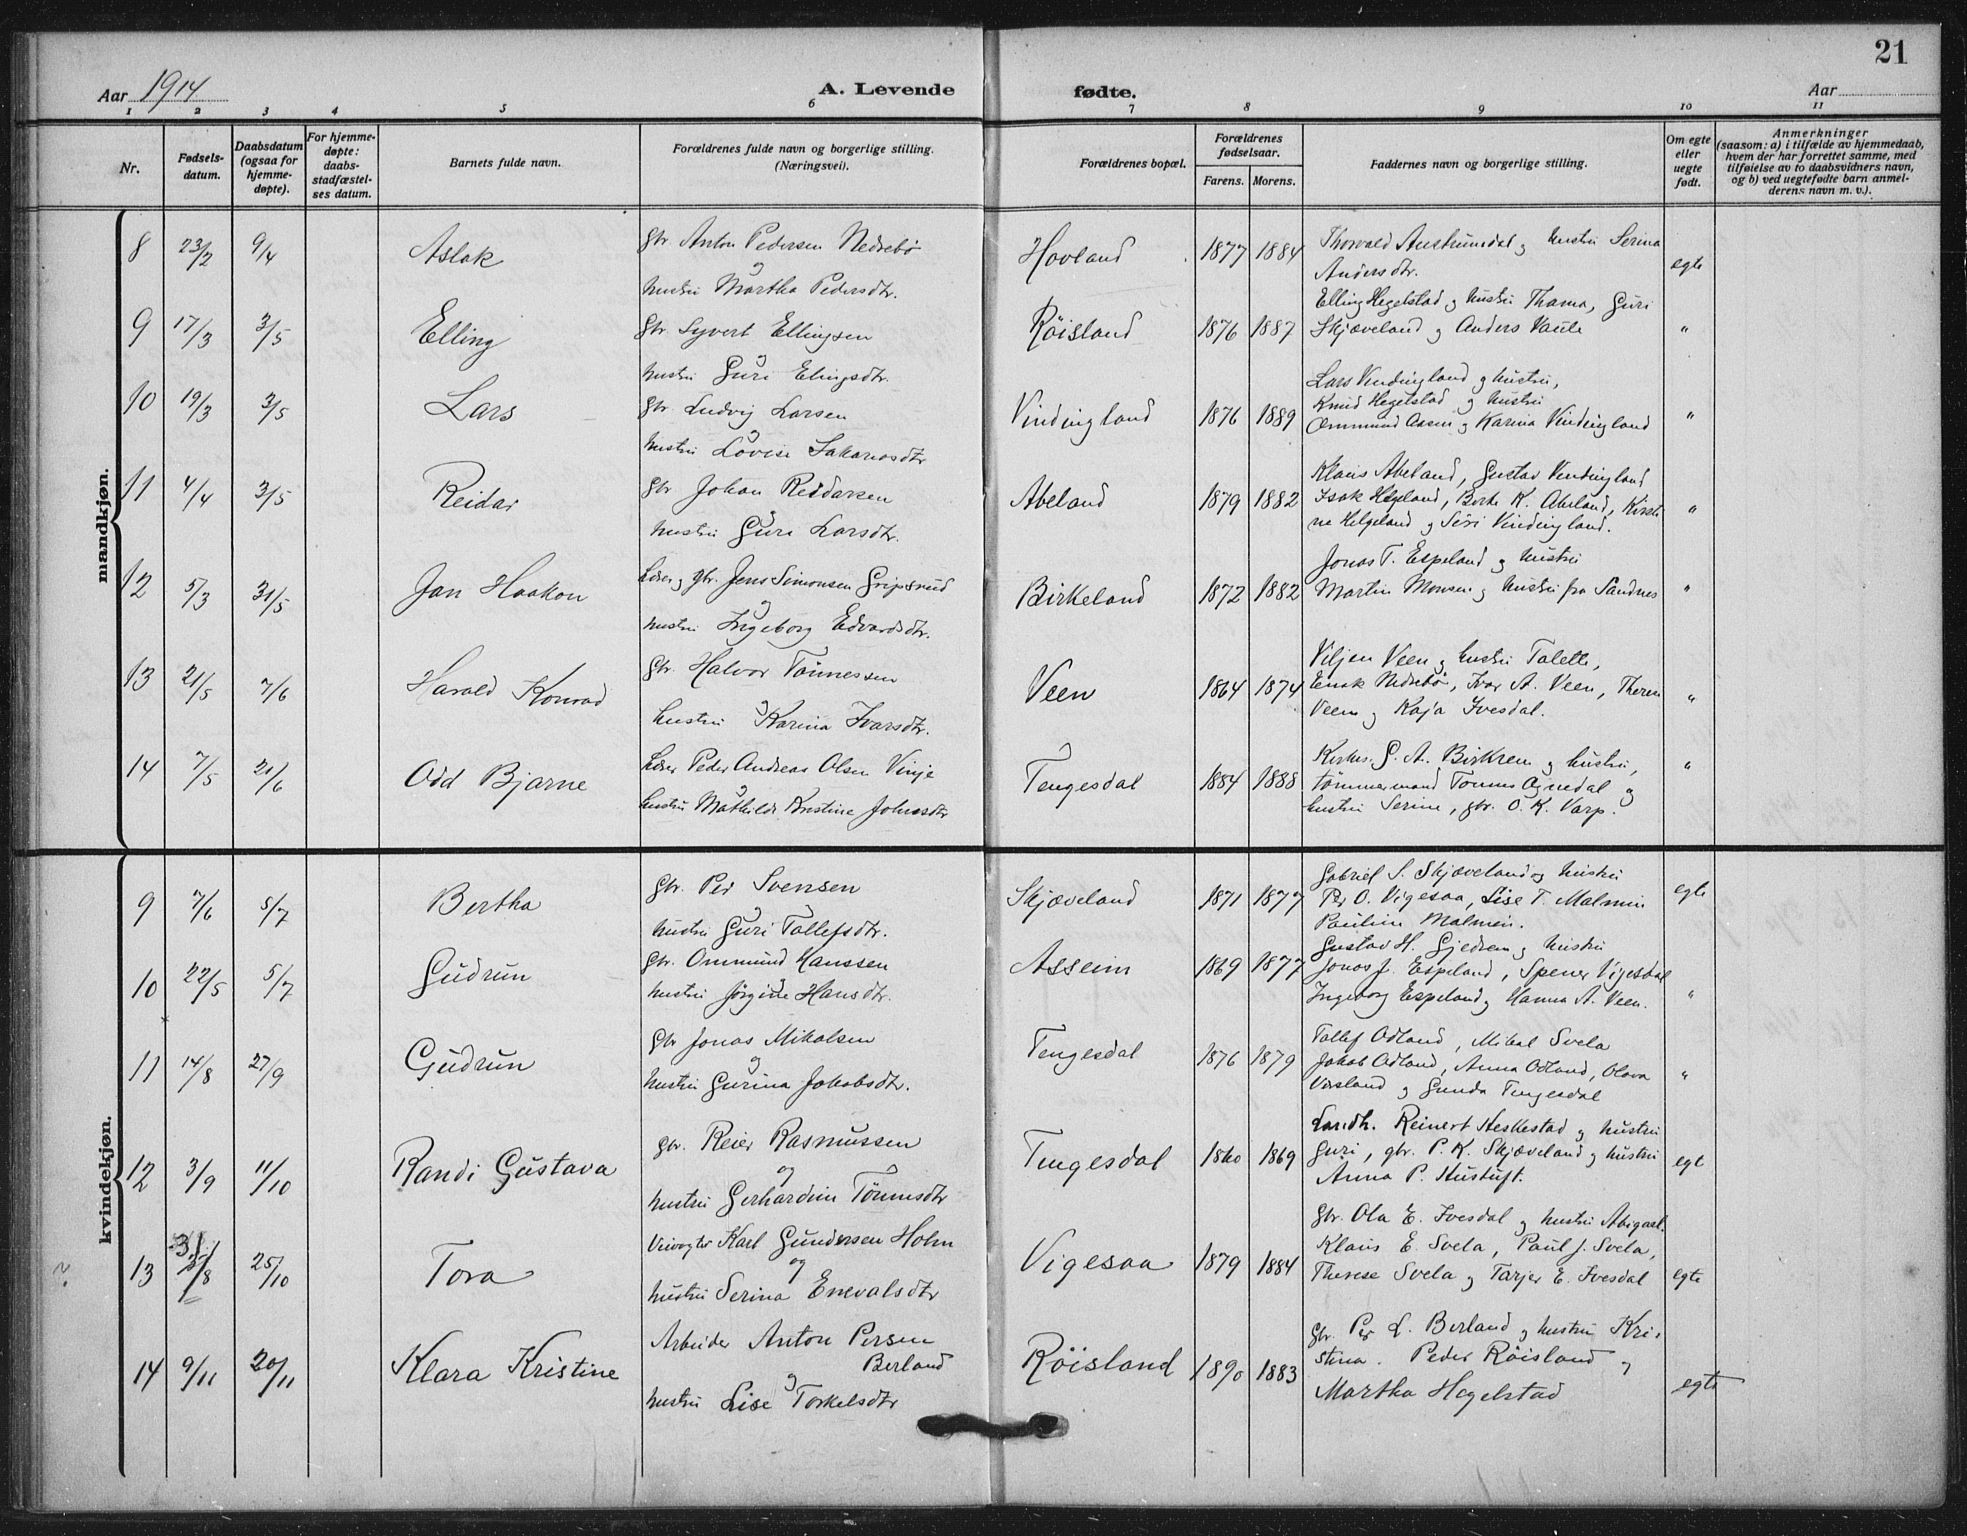 21
Aar 1914
A. Levende fødte.
Aar
1 2 3 4 5 6 7 8 9 10 11
Nr.
Fødsels-
datum.
Daabsdatum
(ogsaa for
hjemme-
døpte).
For hjemme-
døpte:
daabs-
stadfæstel-
ses datum.
Barnets fulde navn.
Forældrenes fulde navn og borgerlige stilling.
(Næringsvei).
Forældrenes bopæl.
Forældrenes
fødselsaar.
Farens. Morens.
Faddernes navn og borgerlige stilling.
Om egte
eller
uegte
født.
Anmerkninger
(saasom: a) i tilfælde av hjemmedaab,
hvem der har forrettet samme, med
tilføielse av to daabsvidners navn,
og b) ved uegtefødte barn anmel-
derens navn m. v.).
mandkjøn.
8 23/2 9/4 Aslak
Gbr. Anton Pedersen Nedrebø
og
hustru Martha Pedersdtr.
Hovland 1877 1884
Thorvald Austrumdal og hustru Serina
Andersdtr.
egte
9 17/3 3/5 Elling
Gbr. Syvert Ellingsen
og
hustru Guri Elingsdtr.
Røisland 1876 1887
Elling Hegelstad og hustru Thama, Guri
Skjæveland og Anders Vaule
"
10 19/3 3/5 Lars
Gbr. Ludvig Larsen
og
hustru Lovise Sakariasdtr
Vindingland 1876 1889
Lars Vindingland og hustru,
Knud Hegelstad og hustru
Ommund Aasen og Karina Vindingland
"
11 4/4 3/5 Reidar
Gbr Johan Reidarsen
og
hustru Guri Larsdtr.
Abeland 1879 1882
Klaus Abeland, Gustav Vindingland
Isak Helgeland, Berte K. Abeland, Kirsti
ne Helgeland og Siri Vindingland.
"
12 5/3 31/5 Jan Haakon
Lærer og gbr. Jens Simonsen Gripsrud
og
hustru Ingeborg Edvardsdtr.
Birkeland 1872 1882
Jonas T. Espeland og hustru
Martin Monsen og hustru fra Sandnes
"
13 21/5 7/6 Harald Konrad
Gbr. Halvor Tønnessen
og
hustru Karina Ivarsdtr.
Veen 1864 1874
Viljen Veen og hustru Talette,
Nedrebø, Ivar A. Veen,
Veen og Kaja Ivesdal.
"
14 7/5 21/6 Odd Bjarne
Lærer Peder Andreas Olsen Vinje
og
hustru Mathilde Kristine Johnsdtr
Tengesdal 1884 1888
Kirkes. G. A. Birkrem og hustru,
tømmermand Tønnes Ognedal og
hustru Serine, gbr. O. K. Varp.
"
kvindekjøn.
9 7/6 5/7 Bertha
Gbr. Per Svensen
og
hustru Guri Tollefsdtr.
Skjæveland 1871 1877
Gabriel S. Skjæveland og hustru
Per O. Vigesaa, Lise T. Malmin
Pauline Malmin.
egte
10 22/5 5/7 Gudrun
Gbr. Ommund Hanssen
og
hustru Jørgine Hansdtr.
Asseim 1869 1877
Gustav H. Gjedrem og hustru
Jonas J. Espeland, Spener Vigesdal
Ingeborg Espeland og Hanna A. Veen.
"
11 14/8 27/9 Gudrun
Gbr Jonas Mikalsen
og
hustru Gurina Jakobsdtr.
Tengesdal 1876 1879
Tollef Odland, Mikal Svela
Jakob Odland, Anna Odland, Olava
Virsland og Gunda Tengesdal
"
12 3/9 11/10 Randi Gustava
Gbr. Reier Rasmussen
og
hustru Gerhardine Tønnesdtr
Tengesdal 1860 1869
Landh. Reinert Heskestad og hustru
Guri, gbr. P. K. Skjæveland og hustru
Anna P. Hustuft.
egte
13 31/8 25/10 Tora
Veivogter Karl Gundersen Holm
og
hustru Serina Enevalsdtr
Vigesaa 1879 1884
Gbr. Ola E. Ivesdal og hustru Abigael.
Klaus E. Svela, Paul J. Svela,
Therese Svela og Tarjer E. Ivesdal
egte
14 9/11 20/11 Klara Kristine
Arbeider Anton Persen
Berland
og
hustru Lise Torkelsdtr
Røisland 1890 1883
Gbr. Per L. Berland og hustru Kri-
stina. Peder Røisland og
Martha Hegelstad
egte